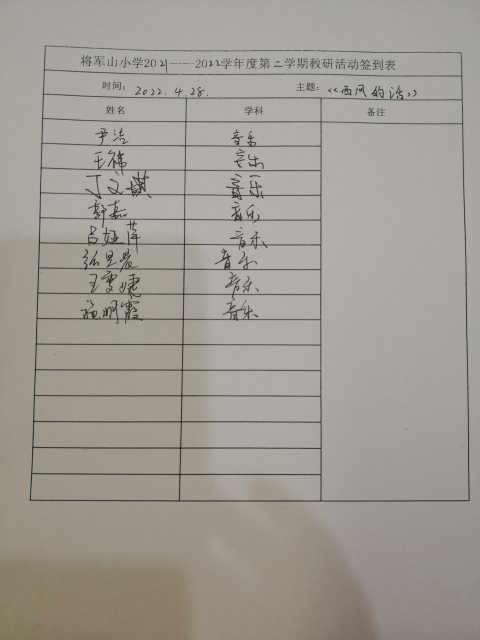 将军山小学2021——2022学年度第二学期教研活动签到表
时间: 2022.4.28. 主题: 《西风的话》
姓名 学科 备注
尹洁 音乐
王祎 音乐
丁文琪 音乐
郭嘉 音乐
吕娅萍 音乐
张昱晨 音乐
王雯婕 音乐
施明霞 音乐